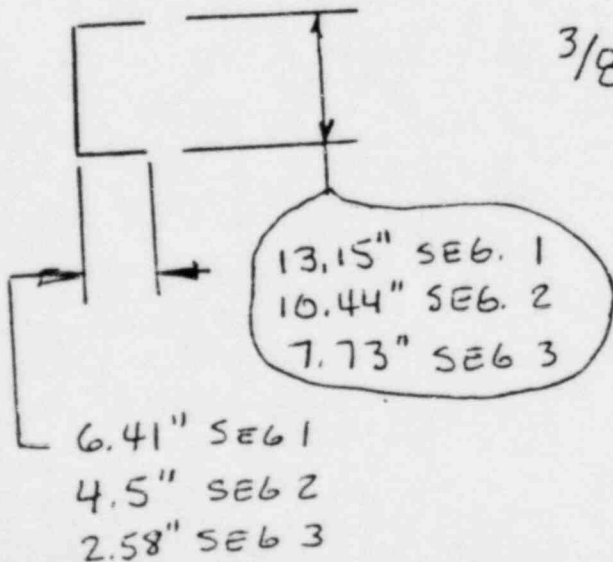 3/8
13.15" SEG. 1
10.44" SEG. 2
7.73" SEG 3
6.41" SEG 1
4.5" SEG 2
2.58" SEG 3